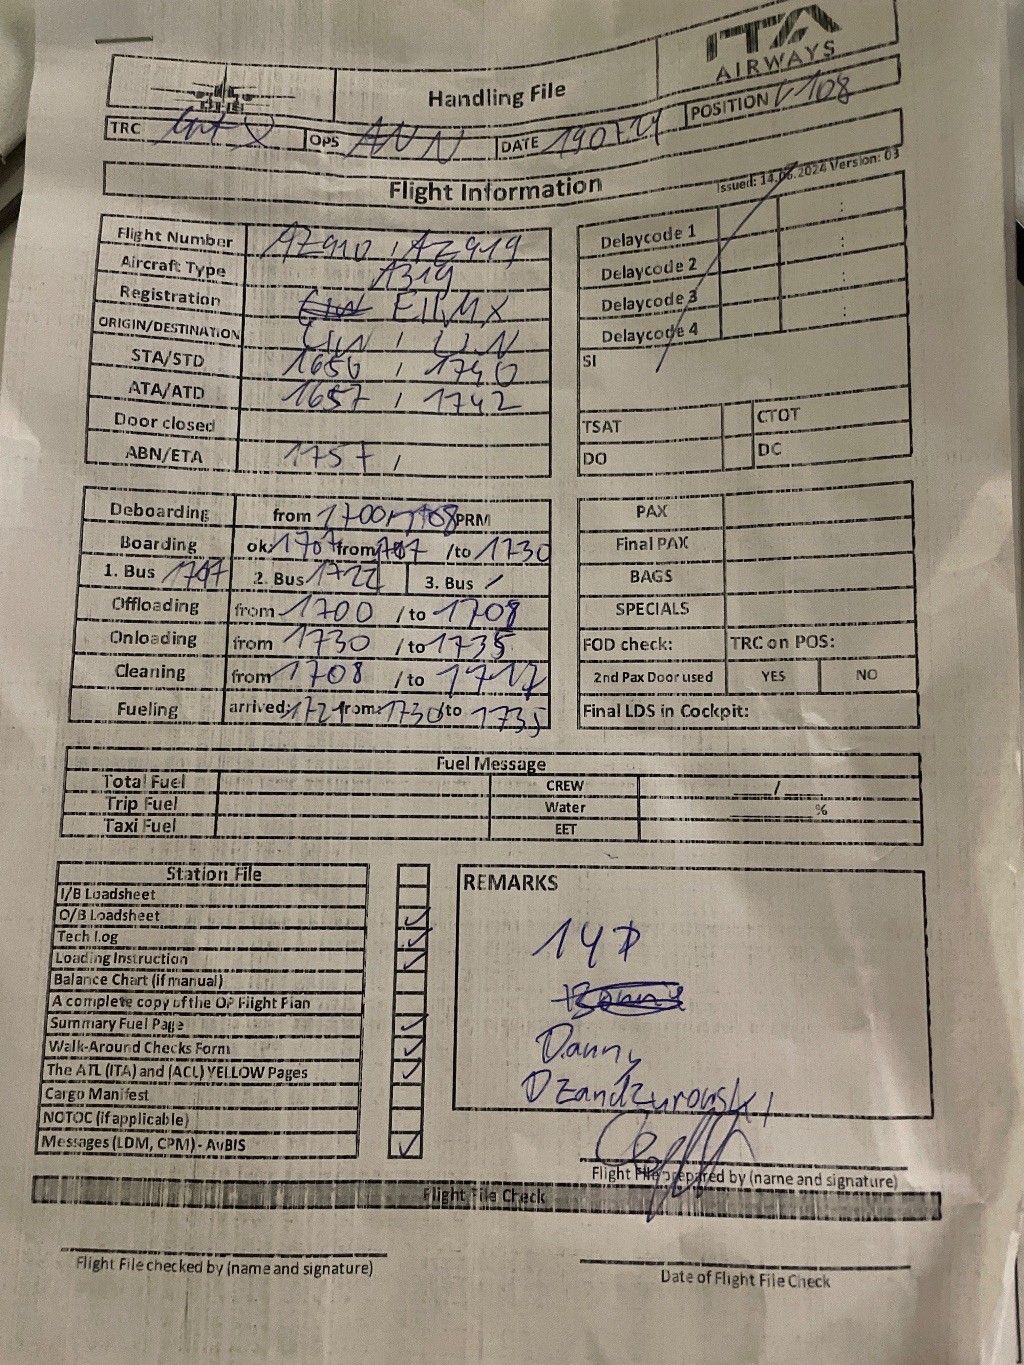 Handling File
ITA
AIRWAYS
TRC OPS ANN DATE 190724 POSITION V108
Flight Information
Issued: 14.06.2024 Version: 03
Flight Number AZ910 / AZ919
Aircraft Type A319
Registration EIIMX
ORIGIN/DESTINATION LIN / LIN
STA/STD 1650 / 1740
ATA/ATD 1657 / 1742
Door closed
ABN/ETA 1757 /
Delaycode 1 :
Delaycode 2 :
Delaycode 3 :
Delaycode 4 :
SI
TSAT CTOT
DO DC
Deboarding from 1700 1708 PRM
Boarding ok: 1707 from 1707 /to 1730
1. Bus 1707 2. Bus 1722 3. Bus /
Offloading from 1700 /to 1708
Onloading from 1730 /to 1735
Cleaning from 1708 /to 1717
Fueling arrived: 1721 from: 1730 /to 1735
PAX
Final PAX
BAGS
SPECIALS
FOD check: TRC on POS:
2nd Pax Door used YES NO
Final LDS in Cockpit:
Fuel Message
Total Fuel CREW ____/____
Trip Fuel Water ________%
Taxi Fuel EET
Station File
I/B Loadsheet
O/B Loadsheet
Tech Log
Loading Instruction
Balance Chart (if manual)
A complete copy of the OP Flight Plan
Summary Fuel Page
Walk-Around Checks Form
The ATL (ITA) and (ACL) YELLOW Pages
Cargo Manifest
NOTOC (if applicable)
Messages (LDM, CPM) - AvBIS
REMARKS
Danny
Dzandzurowski
Flight File prepared by (name and signature)
Flight File Check
Flight File checked by (name and signature)
Date of Flight File Check